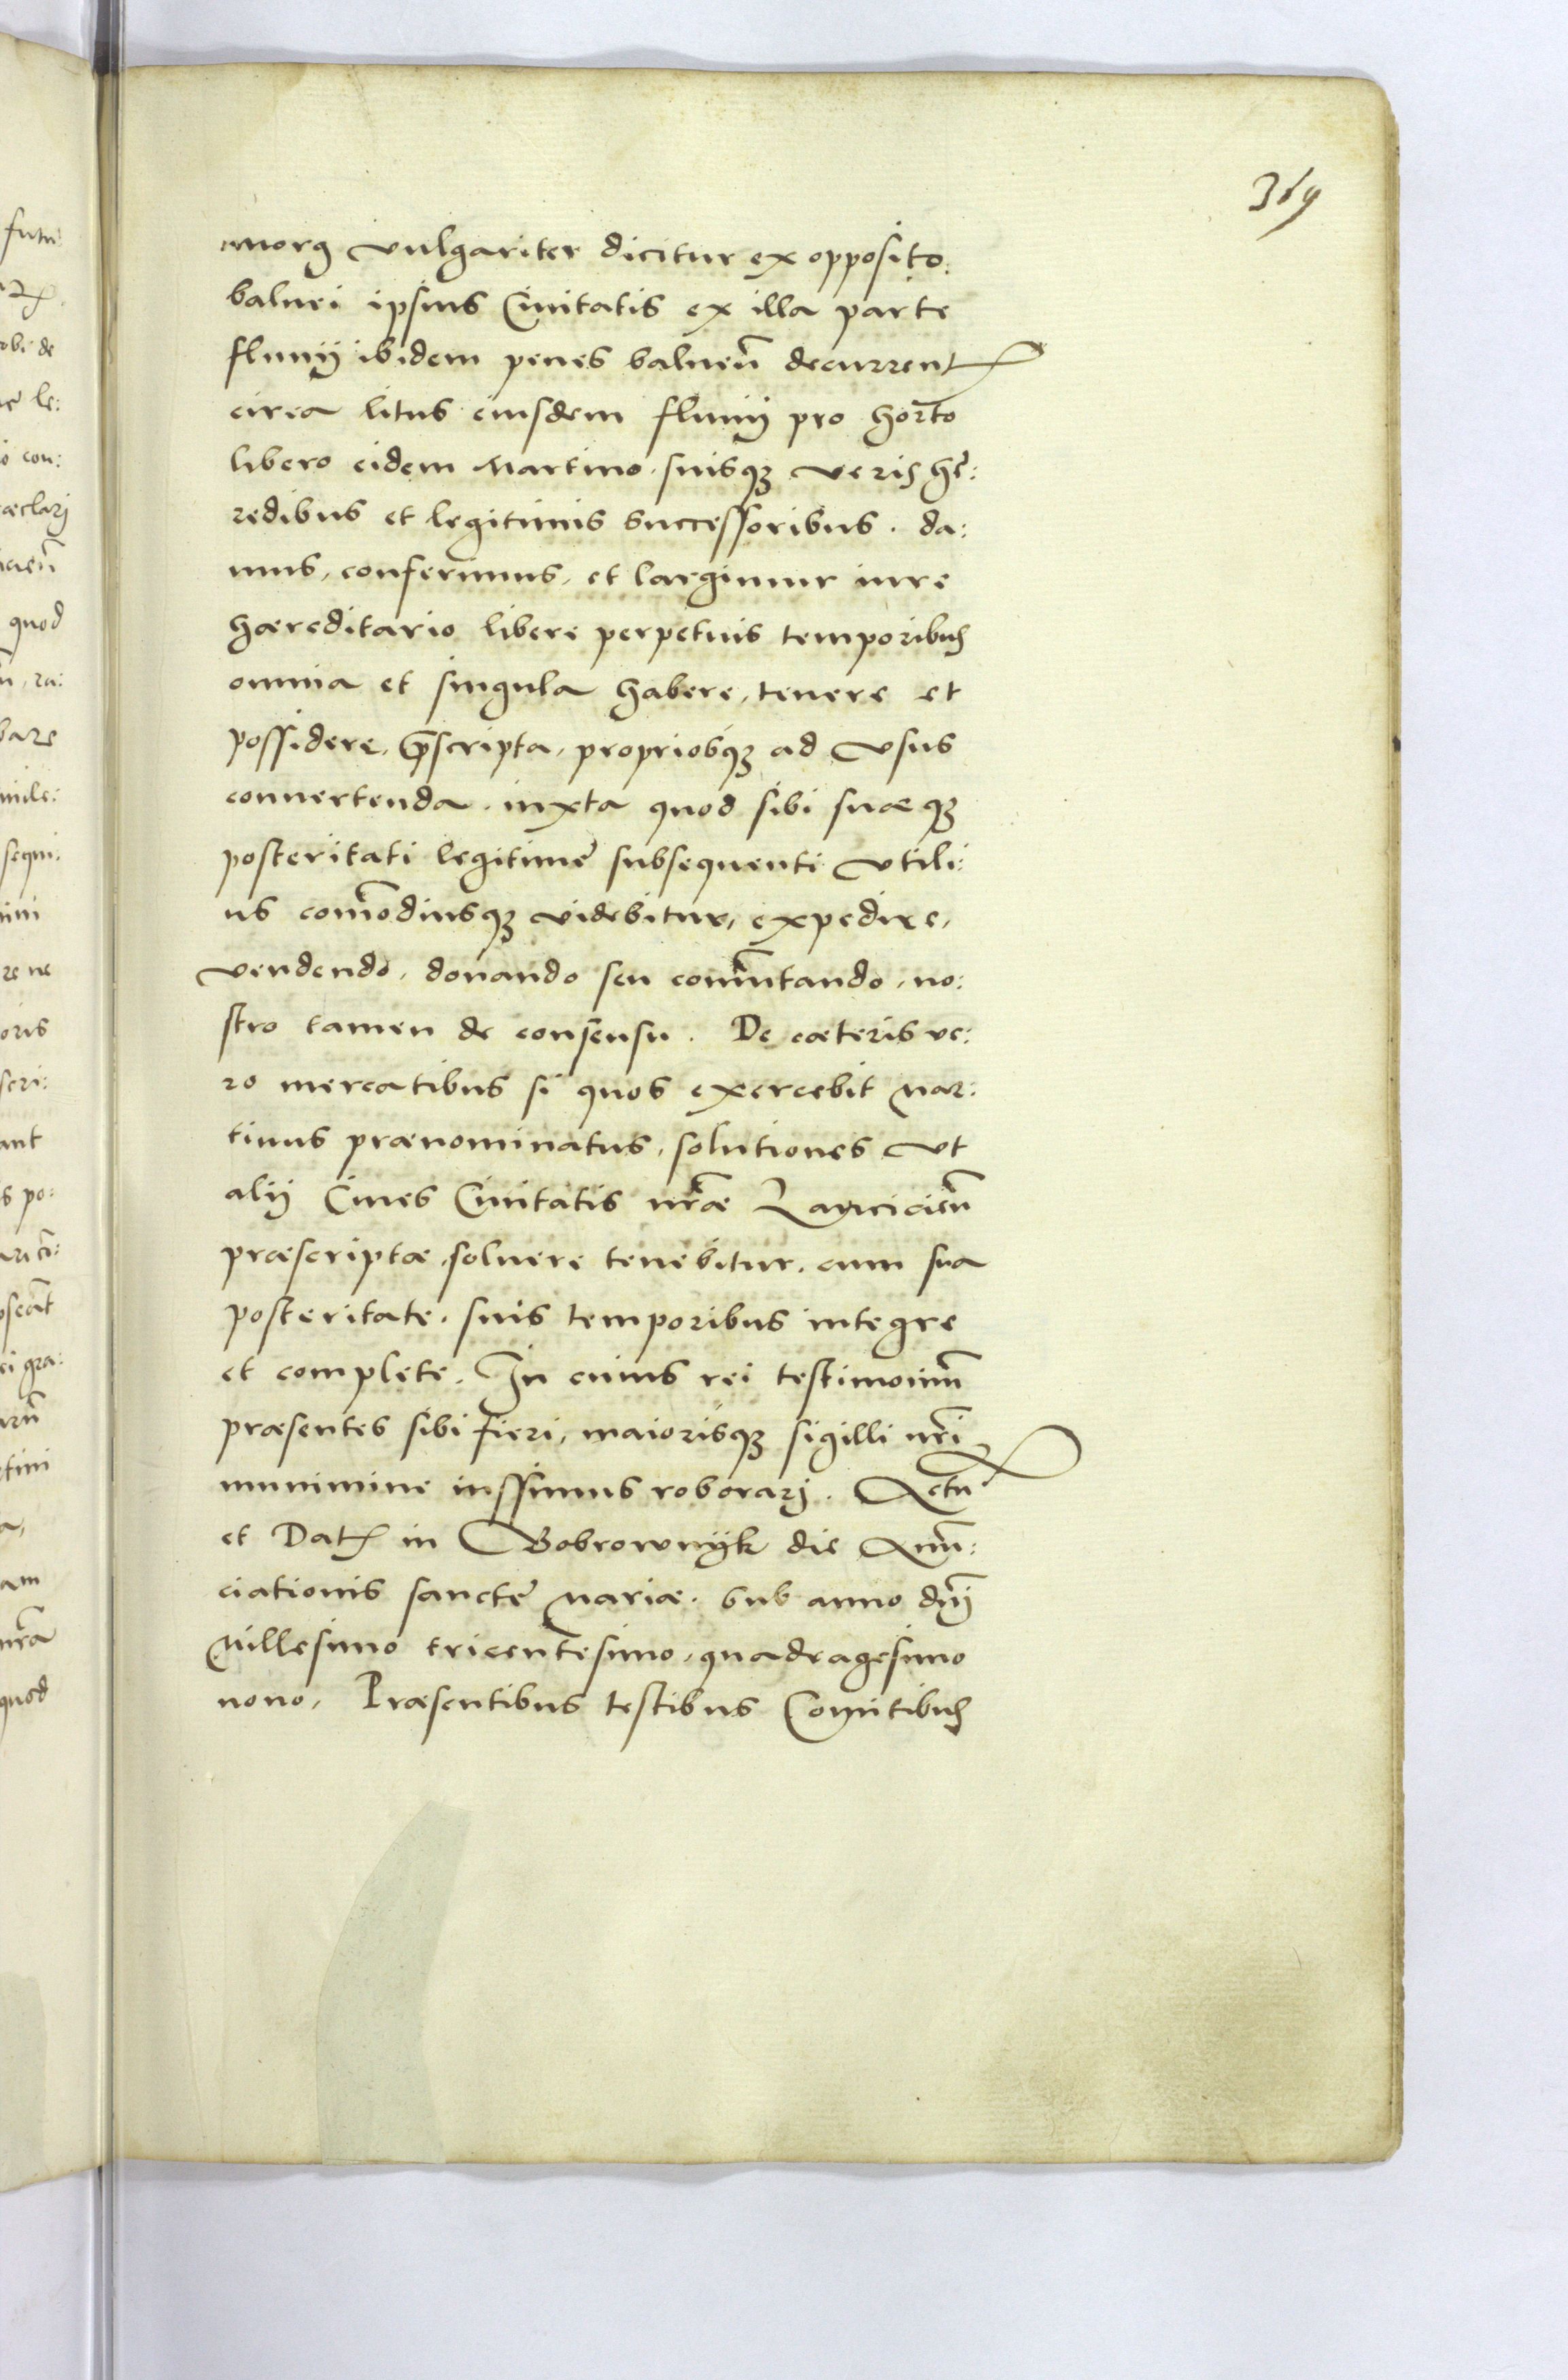 369
morg vulgariter dicitur ex opposito
balnei ipsius Ciuitatis ex illa parte
fluuij ibidem penes balneũ decurrent
circa litus eiusdem fluuij pro horto
libero eidem Martino suisqꝫ veris hę:
redibus et legitimis successoribus. da:
mus, conferimus, et largimur iure
hæreditario libere perpetuis temporibus
omnia et singula habere, tenere et
possidere, p̃scripta, propriosqꝫ ad vsus
conuertenda. iuxta quod sibi suæqꝫ
posteritati legitimę subsequenti vtili:
us com̃odiusqꝫ videbitur, expedire,
vendendo, donando seu com̃utando, no:
stro tamen de consensu. De cæteris ve:
ro mercatibus si quos exercebit Mar:
tinus prænominatus, solutiones vt
alij Ciues Ciuitatis nr̃æ Lancicieñ
præscriptæ, soluere tenebitur. cum sua
posteritate. suis temporibus integre
et complete. In cuius rei testimoniũ
præsentes sibi fieri, maiorisqꝫ sigilli nr̃i
munimine iussimus roborarj. Actũ
et Dat in Bobrownyk die Annũ:
ciationis sanctę Mariæ. Sub anno dñj
Millesimo tricentesimo, quadragesimo
nono. Præsentibus testibus Comitibus
futu:
obi de
le:
con:
æclarj
quod
ra:
bare
uile:
sequi:
re ne
oris
scri:
ant
s po:
gra:
tini
am
nr̃a
quod